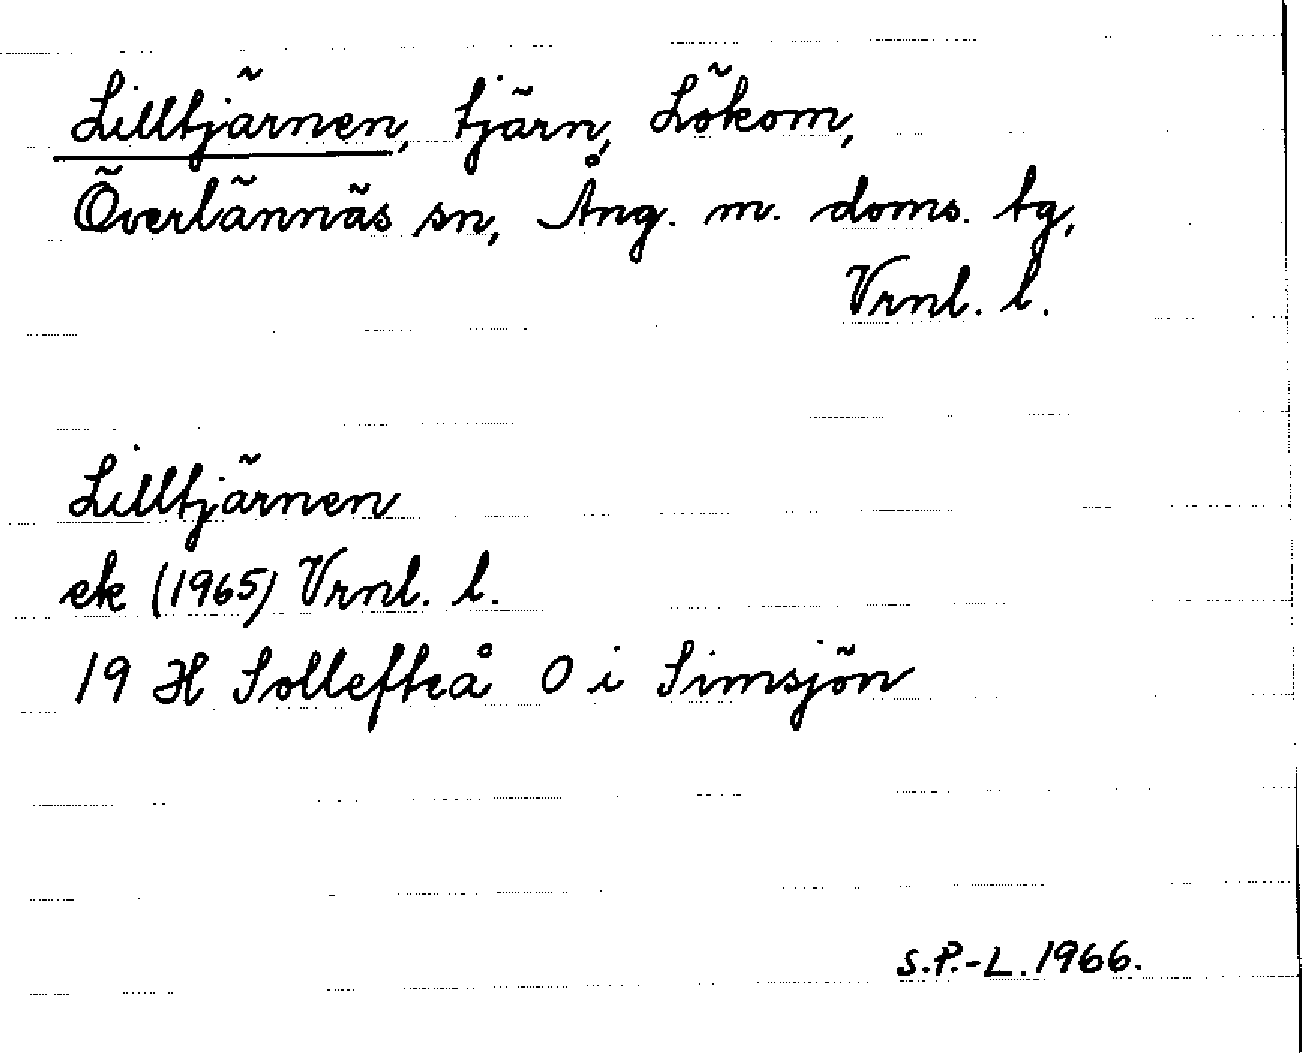 Lilltjärnen, tjärn, Lökom,
Överlännäs sn, Ång. m. doms. tg,
Vrnl. l.
Lilltjärnen
ek (1965) Vrnl. l.
19 H Sollefteå O i Simsjön
S.P.-L. 1966.